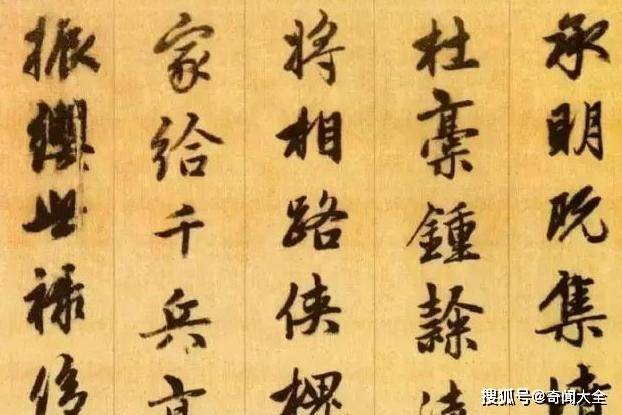 承明既集
杜稾鍾隸
將相路俠槐
家給千兵高
振纓世祿侈
搜狐号@奇闻大全